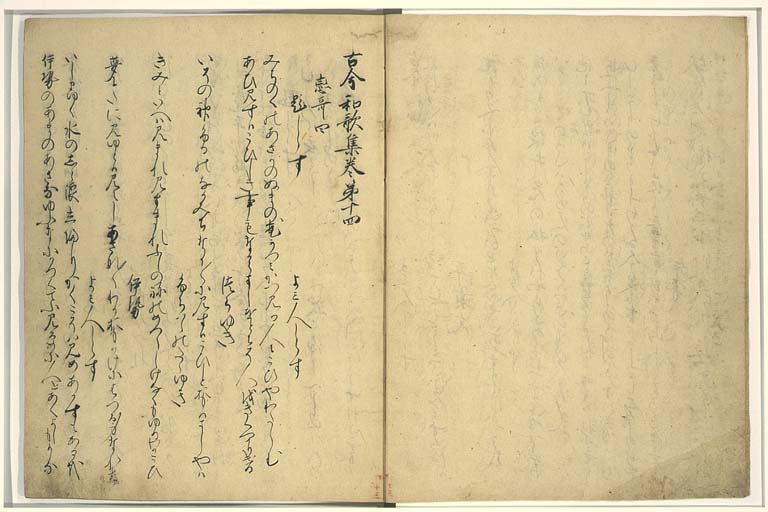 古今和歌集巻第十四
恋哥四
題しらす
よみ人しらす
みちのくのあさかのぬまの花かつみかつみる人にこひやわたらむ
あひみすはこひしきこともなからましおとにそ人をきくへかりける
つらゆき
いその神ふるのなかみちなか〱にみすはこひしとおもはましやは
ふちはらのたゝゆき
きみといへはみまれみすまれふしのねのめつらしけなくもゆるわかこひ
伊勢
夢にたにみゆとはみえしあさな〱わかおもかけにはつる身なれは
よみ人しらす
いしまゆく水のしら浪立帰りかくこそはみめあかすもあるかな
伊勢のあまのあさなゆふなにかつくてふみるめに人をあくよしもかな